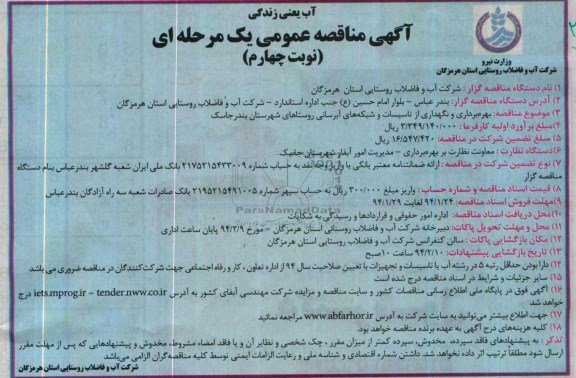 آب یعنی زندگی
آگهی مناقصه عمومی یک مرحله ای
(نوبت چهارم)
وزارت نیرو
شرکت آب و فاضلاب روستایی استان هرمزگان
۱) نام دستگاه مناقصه گزار : شرکت آب و فاضلاب روستایی استان هرمزگان
۲) آدرس دستگاه مناقصه گزار: بندر عباس – بلوار امام حسین (ع) جنب اداره استاندارد – شرکت آب و فاضلاب روستایی استان هرمزگان
۳) موضوع مناقصه: بهره‌برداری و نگهداری از تاسیسات و شبکه‌های آبرسانی روستاهای شهرستان بندرجاسک
۴)مبلغ برآورد اولیه کارفرما : ۳/۳۴۹/۱۴۰/۰۰۰ ریال
۵) مبلغ تضمین شرکت در مناقصه: ۱۶/۵۴۷/۴۲۰ ریال
۶)دستگاه نظارت : معاونت نظارت بر بهره‌برداری – مدیریت امور آبفار شهرستان جاسک
۷) نوع تضمین شرکت در مناقصه : ارائه ضمانتنامه معتبر بانکی یا واریز وجه نقد به حساب شماره ۲۱۷۵۲۱۵۴۳۳۰۰۹ بانک ملی ایران شعبه گلشهر بندرعباس بنام دستگاه
مناقصه گزار
۸) قیمت اسناد مناقصه و شماره حساب : واریز مبلغ ۳۰۰/۰۰۰ ریال به حساب سپهر شماره ۲۱۹۵۲۱۵۴۹۱۰۰۵ بانک صادرات شعبه سه راه آزادگان بندرعباس
۹)مهلت فروش اسناد مناقصه: ۹۴/۱/۲۴ لغایت ۹۴/۱/۲۹
۱۰)محل دریافت اسناد مناقصه: اداره امور حقوقی و قراردادها و رسیدگی به شکایات
۱۱)محل و مهلت تحویل پاکات: دبیرخانه شرکت آب و فاضلاب روستائی استان هرمزگان – مورخ ۹۴/۲/۹ پایان ساعت اداری
۱۲) مکان بازگشایی پاکات : سالن کنفرانس شرکت آب و فاضلاب روستایی استان هرمزگان
۱۳) تاریخ بازگشایی پیشنهادات: ۹۴/۲/۱۰ ساعت ۱۰صبح
۱۴) دارا بودن حداقل رتبه ۵ در رشته آب یا تاسیسات و تجهیزات با تعیین صلاحیت سال ۹۴ از اداره تعاون ، کار و رفاه اجتماعی جهت شرکت‌کنندگان در مناقصه ضروری می باشد
۱۵) سایر جزئیات و شرایط در اسناد مناقصه درج شده است
۱۶) آگهی فوق در پایگاه ملی اطلاع رسانی مناقصات کشور و سایت مناقصه و مزایده شرکت مهندسی آبفای کشور به آدرس iets.mprog.ir – tender.nww.co.ir درج
خواهد شد
۱۷) جهت اطلاع بیشتر می‌توانید به سایت شرکت به آدرس www.abfarhor.ir مراجعه نمائید
۱۸) کلیه هزینه‌های درج آگهی به عهده برنده مناقصه خواهد بود.
تذکر : به پیشنهادهای فاقد سپرده، مخدوش، سپرده کمتر از میزان مقرر ، چک شخصی و نظایر آن و یا فاقد امضاء مشروط، مخدوش و پیشنهادهایی که پس از مهلت مقرر
ارسال شود مطلقاً ترتیب اثر داده نخواهد شد. داشتن شماره اقتصادی و شناسه ملی و رعایت الزامات ایمنی توسط کلیه مناقصه‌گران الزامی می‌باشد
شرکت آب و فاضلاب روستایی استان هرمزگان
ParsNamadData